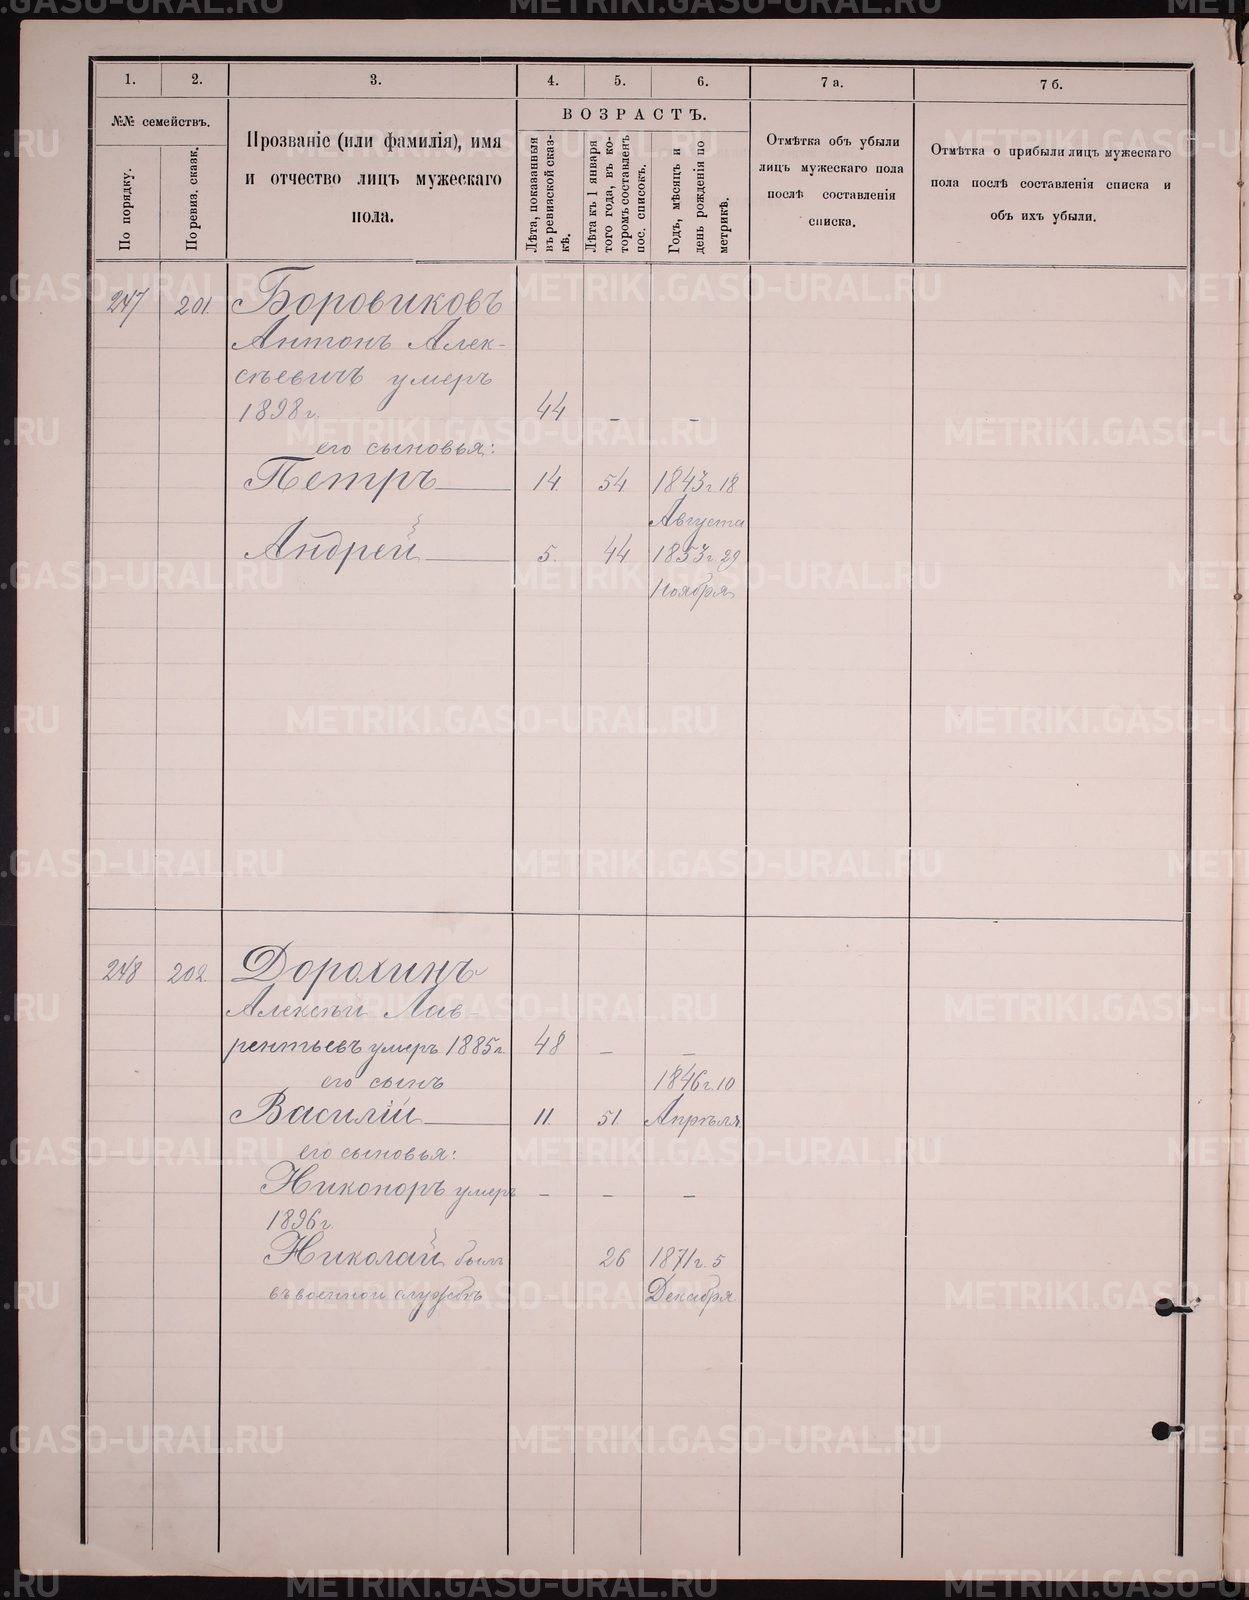 1. 2. 3. 4. 5. 6. 7 а. 7 б.
№№ семействъ.
По порядку.
По ревиз. сказк.
Прозваніе (или фамилія), имя
и отчество лицъ мужескаго
пола.
ВОЗРАСТЪ.
Лѣта, показанныя
въ ревизской сказ-
кѣ.
Лѣта къ 1 января
того года, въ ко-
торомъ составленъ
пос. списокъ.
Годъ, мѣсяцъ и
день рожденія по
метрикѣ.
Отмѣтка объ убыли
лицъ мужескаго пола
послѣ составленія
списка.
Отмѣтка о прибыли лицъ мужескаго
пола послѣ составленія списка и
объ ихъ убыли.
247 201. Боровиковъ
Антонъ Алек-
сѣевичъ умеръ
1898 г. 44 – –
его сыновья:
Петръ 14 54 1843 г. 18
Августа
Андрей 5. 44 1853 г. 29
Ноября
248 202. Дорохинъ
Алексѣй Лав-
рентьевъ умеръ 1885 г. 48 – –
его сынъ 1846 г. 10
Василій 11. 51. Апрѣля
его сыновья:
Никоноръ умеръ – – –
1896 г.
Николай былъ 26 1871 г. 5
въ военной службѣ Декабря
METRIKI.GASO-URAL.RU